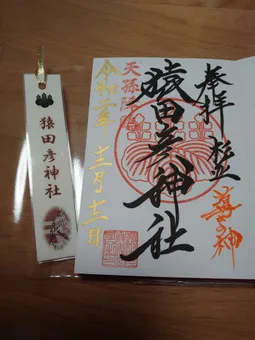 奉拝
導きの神
猿田彦神社
天孫降臨
令和二年十二月十二日
猿田彦神社